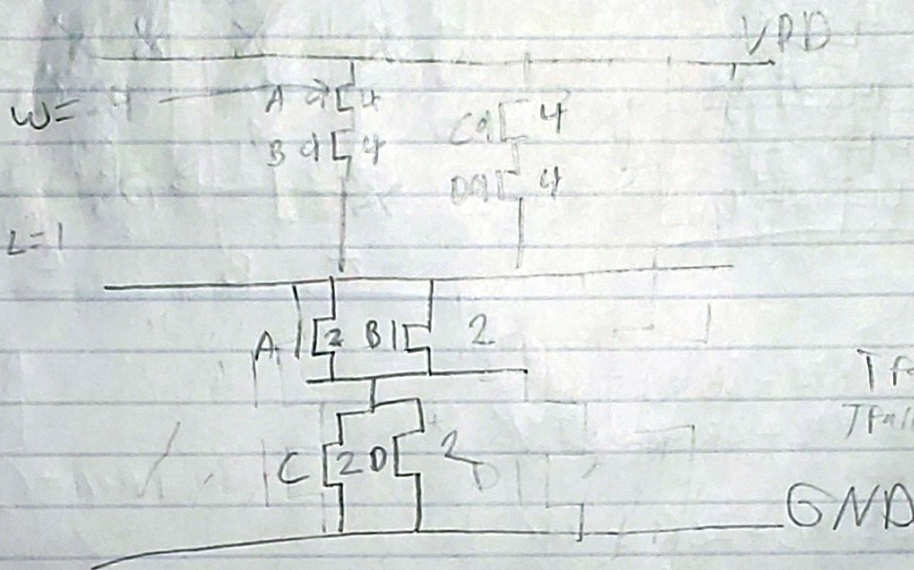 VDD
W= 4 A 4
B 4 C 4
D 4
L=1
A 2 B 2
C 2 D 2
GND